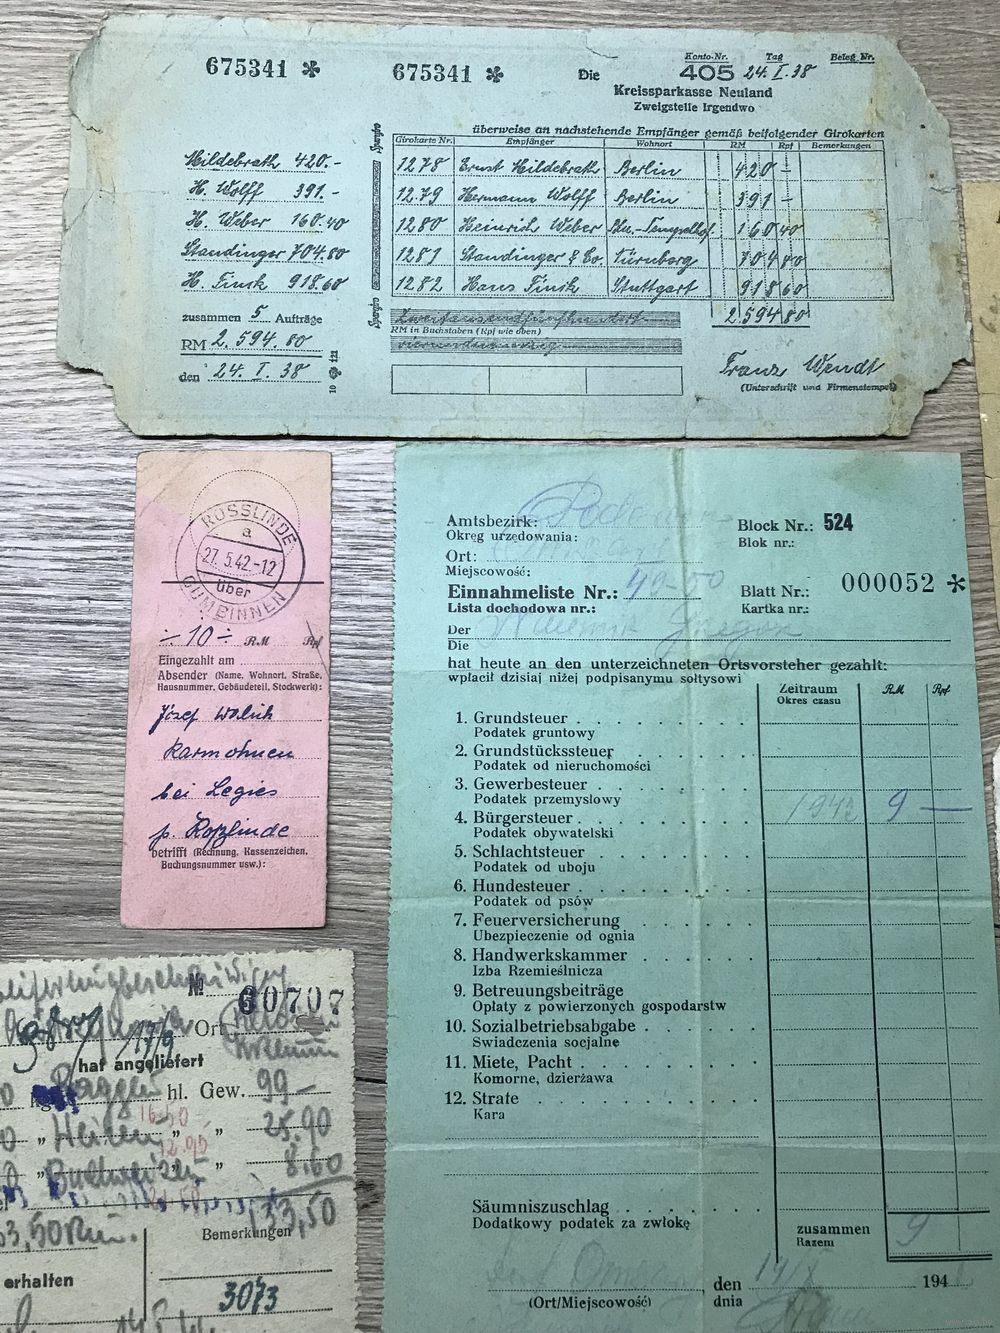 675341 * 675341 * Die Konto-Nr. 405 Tag 24. I. 38 Beleg Nr.
Kreissparkasse Neuland
Zweigstelle Irgendwo
überweise an nachstehende Empfänger gemäß beifolgender Girokarten
Girokarte Nr. Empfänger Wohnort RM Rpf Bemerkungen
Hildebrath 420.- 1278 Ernst Hildebrath Berlin 420 -
H. Wolff 391.- 1279 Hermann Wolff Berlin 391 -
H. Weber 160.40 1280 Heinrich Weber Bln.-Tempelhof 160 40
Standinger 704.80 1281 Standinger & Co. 704 80
H. Finsk 918.60 1282 Hans Finsk Stuttgart 918 60
zusammen 5 Aufträge 2.594 80
RM in Buchstaben (Rpf wie oben)
RM 2.594.80
den 24. I. 38
Franz Wendt
(Unterschrift und Firmenstempel)
Spargiro
Spargiro
ROSSLINDE
a
27.5.42.-12
über
GUMBINNEN
÷ 10 ÷ RM Rpf
Eingezahlt am
Absender (Name, Wohnort, Straße,
Hausnummer, Gebäudeteil, Stockwerk):
Józef Wolich
Karmohnen
bei Legies
p. Roßlinde
betrifft (Rechnung, Kassenzeichen,
Buchungsnummer usw.):
Amtsbezirk:
Okręg urzędowania:
Block Nr.: 524
Blok nr.:
Ort:
Miejscowość:
Einnahmeliste Nr.:
Lista dochodowa nr.:
Blatt Nr.: 000052 *
Kartka nr.:
Der
Die
hat heute an den unterzeichneten Ortsvorsteher gezahlt:
wpłacił dzisiaj niżej podpisanymu sołtysowi
Zeitraum RM Rpf
Okres czasu
1. Grundsteuer
Podatek gruntowy
2. Grundstückssteuer
Podatek od nieruchomości
3. Gewerbesteuer
Podatek przemysłowy
4. Bürgersteuer 1942 9 —
Podatek obywatelski
5. Schlachtsteuer
Podatek od uboju
6. Hundesteuer
Podatek od psów
7. Feuerversicherung
Ubezpieczenie od ognia
8. Handwerkskammer
Izba Rzemieślnicza
9. Betreuungsbeiträge
Opłaty z powierzonych gospodarstw
10. Sozialbetriebsabgabe
Swiadczenia socjalne
11. Miete, Pacht
Komorne, dzierżawa
12. Strafe
Kara
Säumniszuschlag
Dodatkowy podatek za zwłokę
zusammen 9 -
Razem
(Ort/Miejscowość)
den 194
dnia
№ 60707
Ort
hat angeliefert
kg hl. Gew. 99-
" " " 25.90
" " " 8.60
133,50
Bemerkungen
erhalten
3073